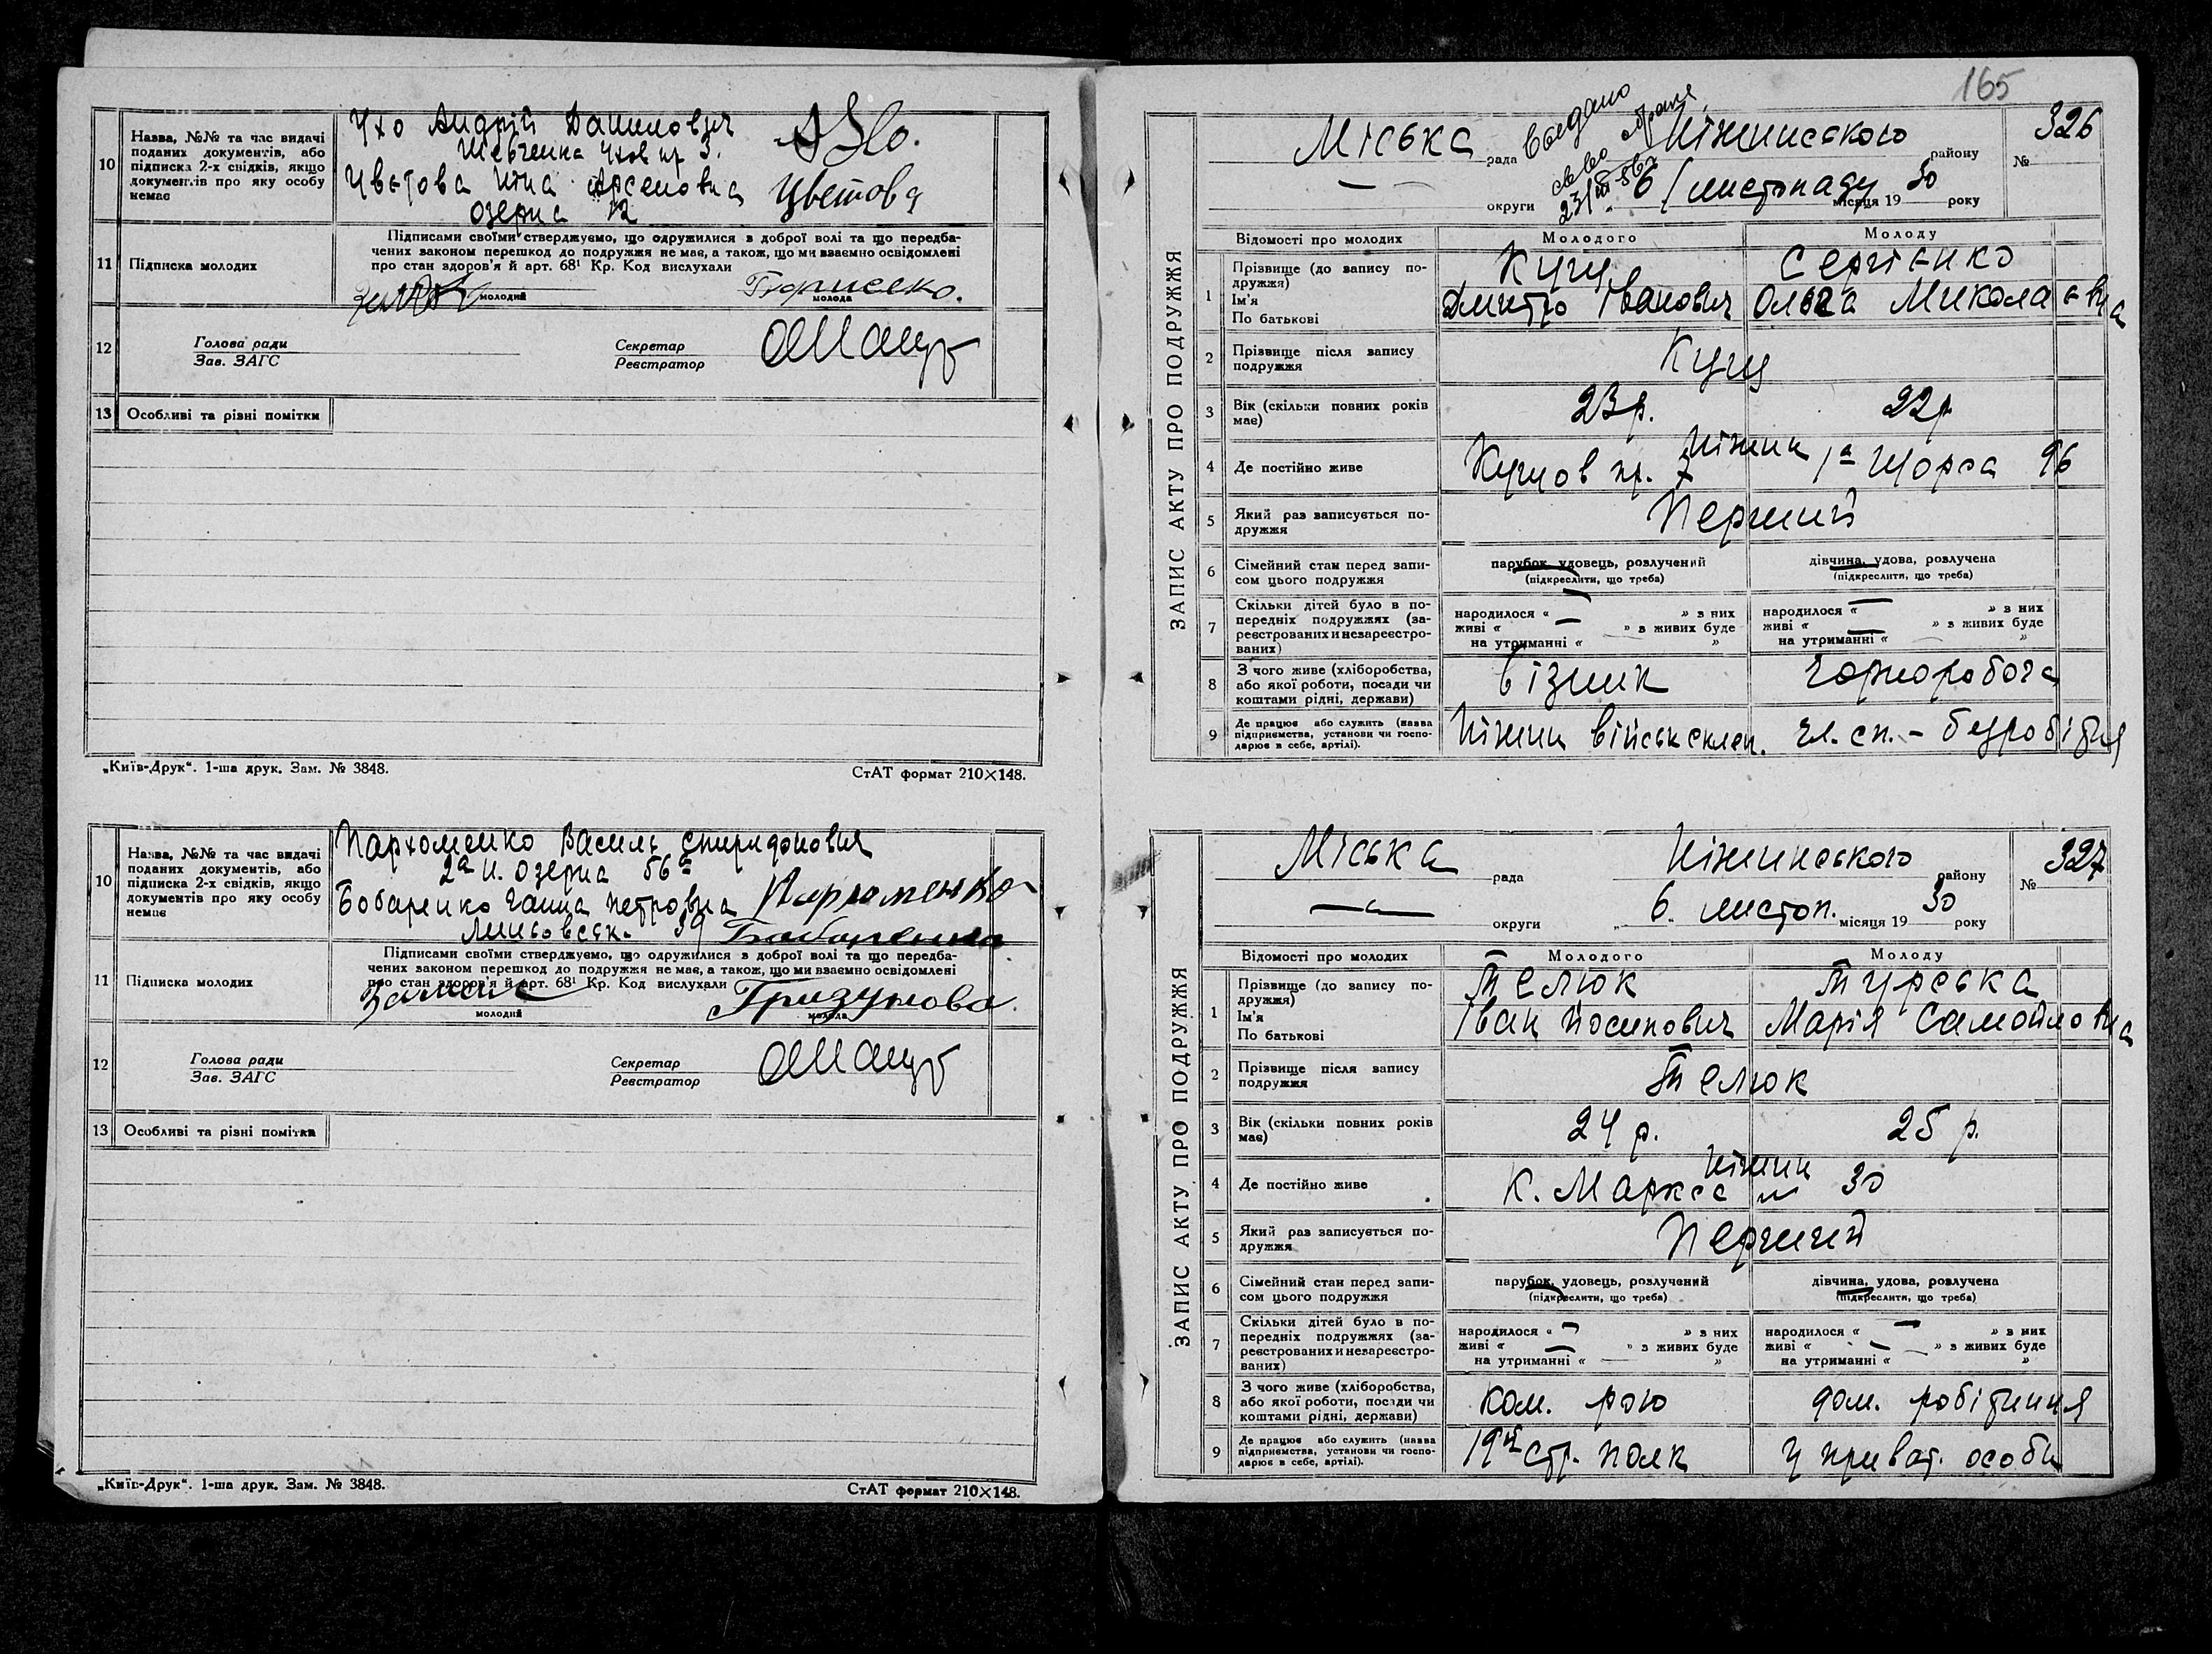 10
Назва, №№ та час видачі
поданих документів, або
підписка 2-х свідків, якщо
документів про яку особу
немає
Ухо Андрій Данилович
Шевченка Ухов пр 3.
Цвєтова Ніна Арсеновна
Озерна 12
Цветова
11
Підписка молодих
Підписами своїми стверджуємо, що одружилися в доброї волі та що передба-
чених законом перешкод до подружжя не має, а також, що ми взаємно освідомлені
про стан здоров'я й арт. 68¹ Кр. Код вислухали
молодий
молода
12
Голова ради
Зав. ЗАГС
Секретар
Реєстратор
13
Особливі та різні помітки
„Київ-Друк“. 1-ша друк. Зам. № 3848.
СтАТ формат 210×148.
10
Назва, №№ та час видачі
поданих документів, або
підписка 2-х свідків, якщо
документів про яку особу
немає
Пархоменко Василь Спиридонович
2а Н. Озерна 56а
Бобаренко Ганна Петровна
39
Пархоменко
Бобаренко
11
Підписка молодих
Підписами своїми стверджуємо, що одружилися в доброї волі та що передба-
чених законом перешкод до подружжя не має, а також, що ми взаємно освідомлені
про стан здоров'я й арт. 68¹ Кр. Код вислухали
Гризунова
молодий
молода
12
Голова ради
Зав. ЗАГС
Секретар
Реєстратор
13
Особливі та різні помітки
„Київ-Друк“. 1-ша друк. Зам. № 3848.
СтАТ формат 210×148.
165
ЗАПИС АКТУ ПРО ПОДРУЖЖЯ
Міська рада Ніжинського району
№ 326
Выдано
св-во о браке
23/III-56г
округи 6/листопаду місяця 1930 року
Відомості про молодих
Молодого
Молоду
1
Прізвище (до запису по-
дружжя)
Ім'я
По батькові
Кущ
Дмитро Іванович
Сергієнко
Ольга Миколаєвна
2
Прізвище після запису
подружжя
Кущ
3
Вік (скільки повних років
має)
23 р.
22 р
4
Де постійно живе
Ніжин
Кущов пр. 7
1а Щорса 96
5
Який раз записується по-
дружжя
Перший
6
Сімейний стан перед запи-
сом цього подружжя
парубок, удовець, розлучений
(підкреслити, що треба)
дівчина, удова, розлучена
(підкреслити, що треба)
7
Скільки дітей було в по-
передніх подружжях (за-
реєстрованих и незареєстро-
ваних)
народилося « — » з них
живі « — » з живих буде
на утриманні « — »
народилося « — » з них
живі « — » з живих буде
на утриманні « — »
8
З чого живе (хліборобства,
або якої роботи, посади чи
коштами рідні, держави)
візник
чорноробоча
9
Де працює або служить (назва
підприємства, установи чи госпо-
дарює в себе, артілі).
Ніжин військ склеп.
чл. сп. - безробітня
ЗАПИС АКТУ ПРО ПОДРУЖЖЯ
Міська рада Ніжинського району
№ 327
— округи „6. листоп. місяця 1930 року
Відомості про молодих
Молодого
Молоду
1
Прізвище (до запису по-
дружжя)
Ім'я
По батькові
Телюк
Іван Йосипович
Турська
Марія Самойловна
2
Прізвище після запису
подружжя
Телюк
3
Вік (скільки повних років
має)
24 р.
25 р.
4
Де постійно живе
Ніжин
К. Маркса № 30
5
Який раз записується по-
дружжя
Перший
6
Сімейний стан перед запи-
сом цього подружжя
парубок, удовець, розлучений
(підкреслити, що треба)
дівчина, удова, розлучена
(підкреслити, що треба)
7
Скільки дітей було в по-
передніх подружжях (за-
реєстрованих и незареєстро-
ваних)
народилося « — » з них
живі « — » з живих буде
на утриманні « — »
народилося « — » з них
живі « — » з живих буде
на утриманні « »
8
З чого живе (хліборобства,
або якої роботи, посади чи
коштами рідні, держави)
ком. рою
дом. робітниця
9
Де працює або служить (назва
підприємства, установи чи госпо-
дарює в себе, артілі).
19й стр. полк
у приват. особи